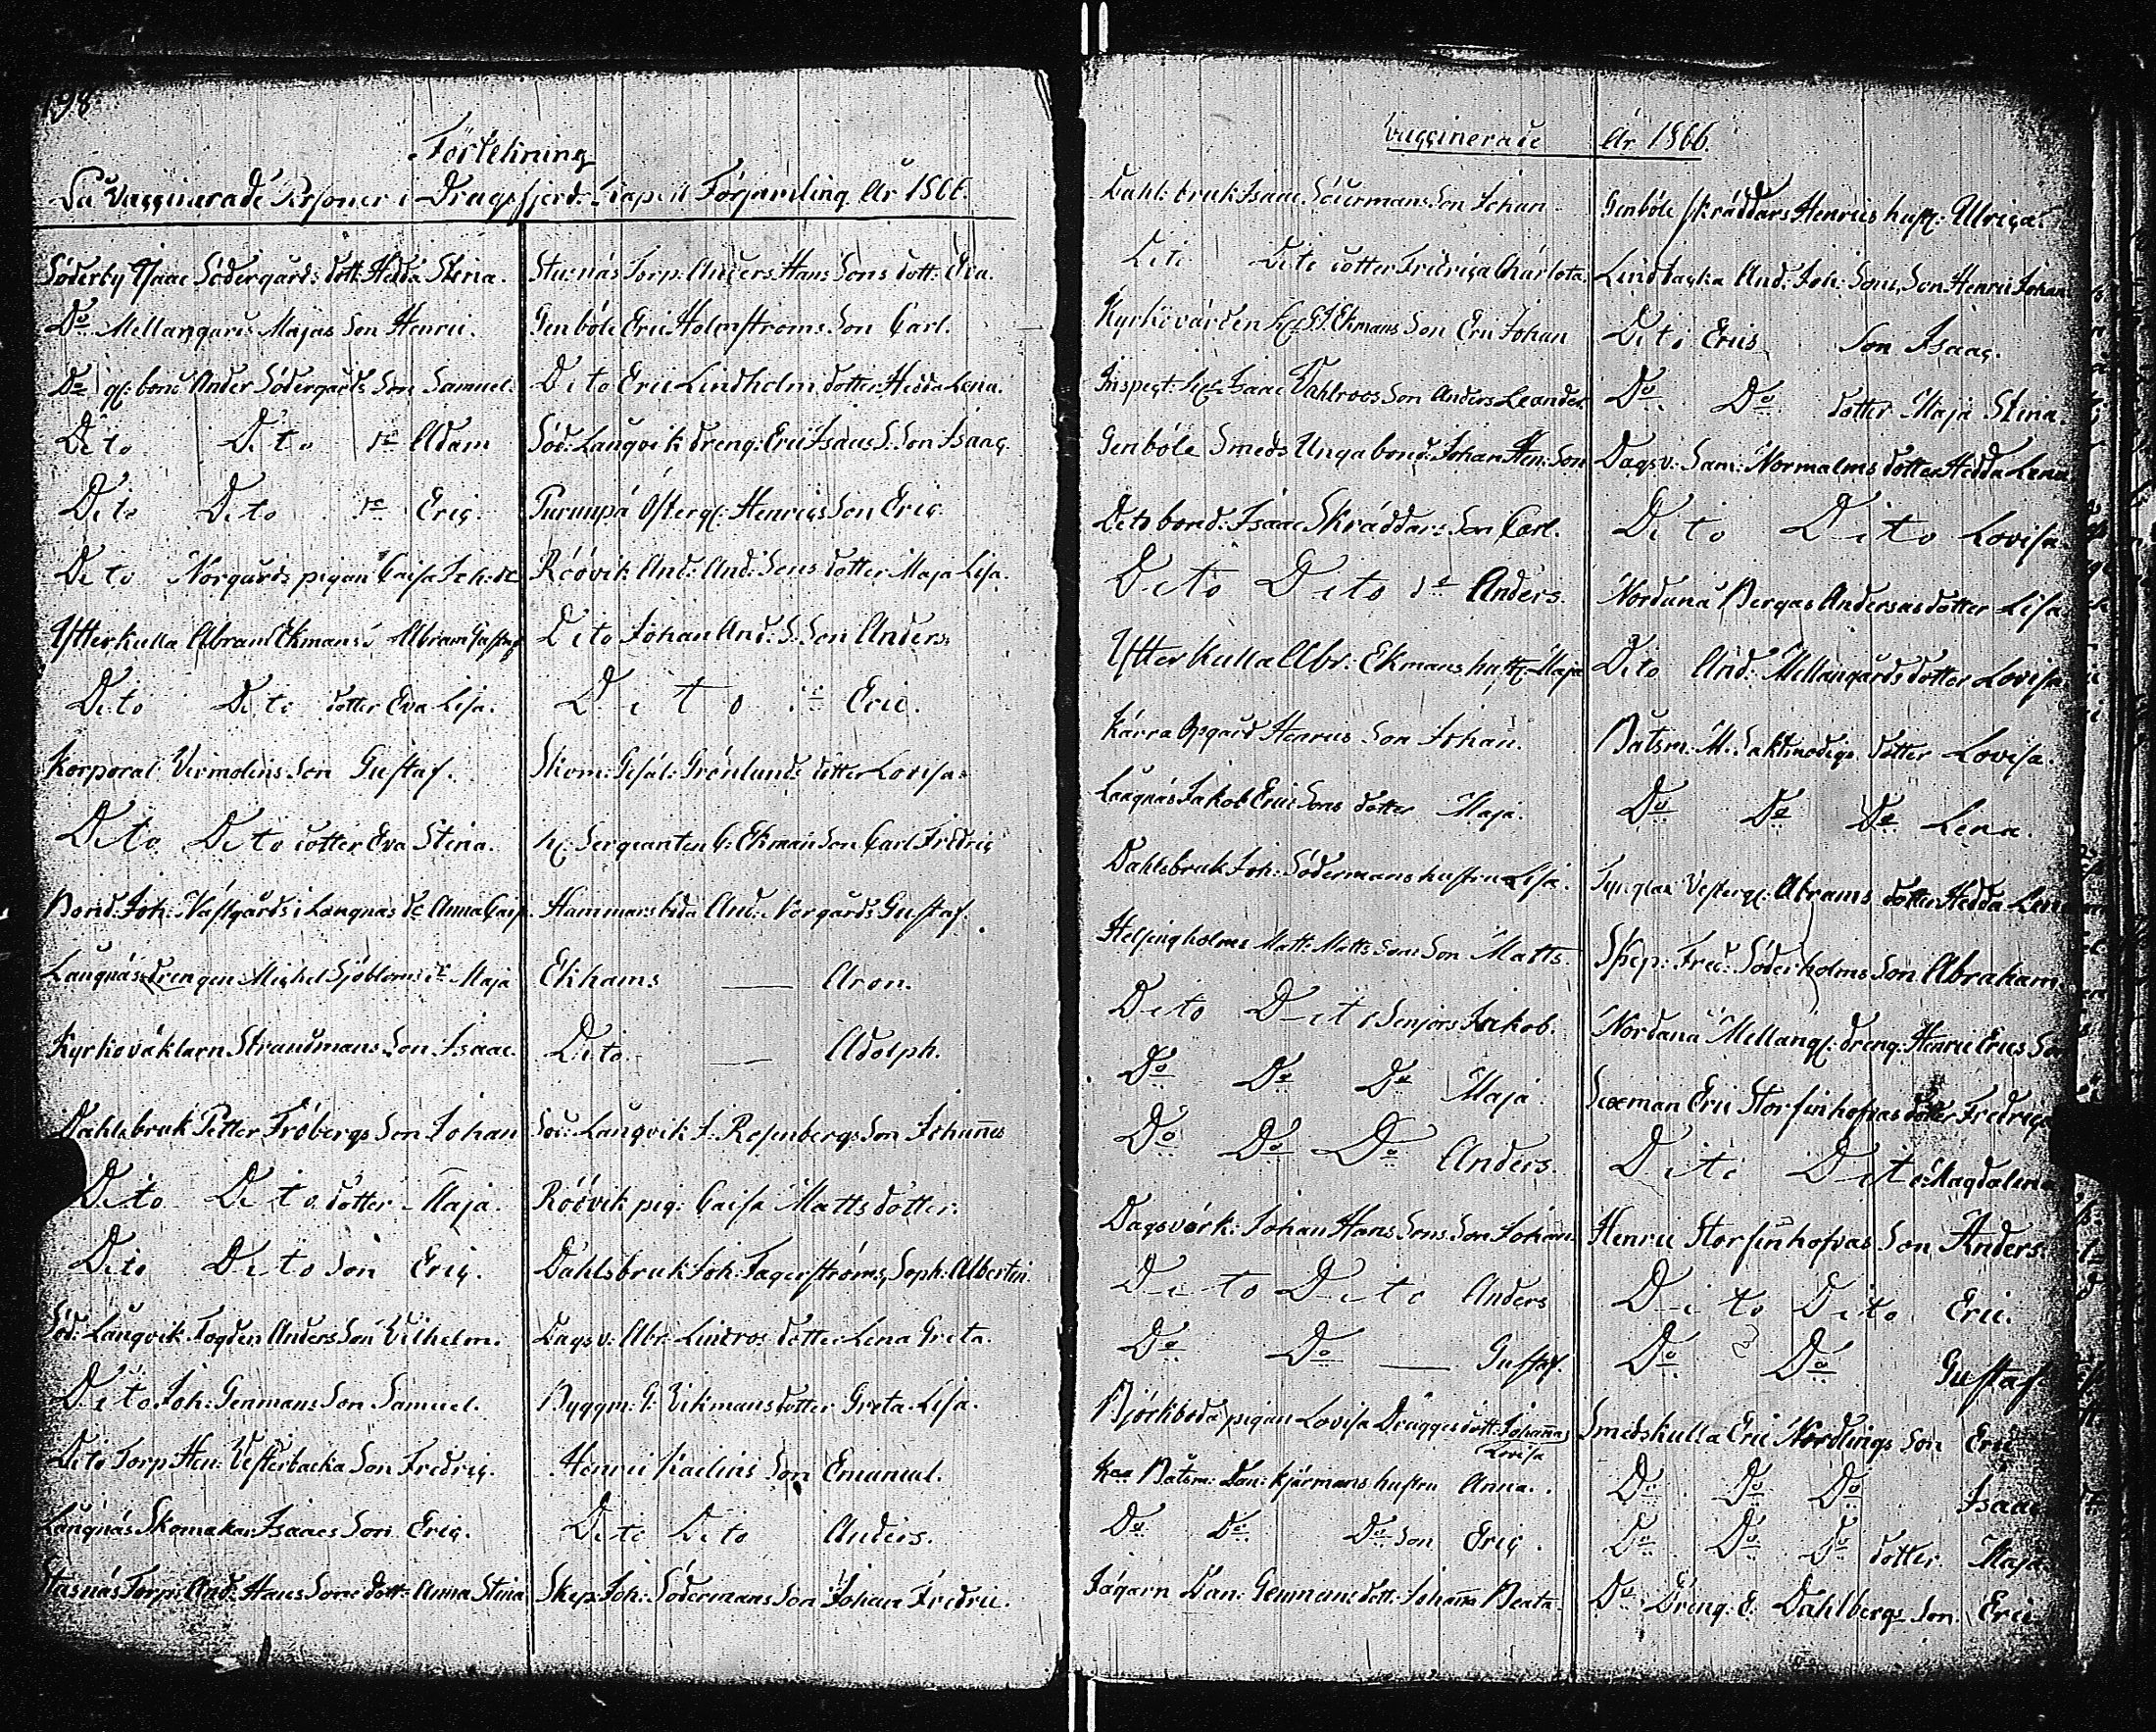 198
Förtekning
På Vaccinerade Personer i Dragsfjerds Kapell Församling År 1866
Söderby Isaac Södergårds dott: Hedda Stina.
Do Mellangårds Majas Son Henric.
Do gl: bond Ander Södergårds Son Samuel.
Dito Dito de Adam
Dito Dito de Eric.
Dito Norgårds pigan Caisa Joh: dr
Ytterkulla Abram Ekmans S. Abram Gustaf
Dito Dito dotter Eva Lisa.
Korporal Virmolins Son Gustaf.
Dito Dito dotter Eva Stina.
Bond. Joh: Västgårds i Långnäs dr Anna Caisa
Långnäs drengen Michel Sjöbloms dr Maja
Kyrkoväktarn Strandmans Son Isaac.
Dahlsbruk Petter Fröbergs Son Johan
Dito Dito dotter Maja.
Dito Dito Son Eric.
Söd: Långvik Fogden Anders Son Vilhelm.
Dito Joh: Genmans Son Samuel.
Dito Torp: Hen: Vesterbacka Son Fredric.
Långnäs Skomakar Isaacs Son Eric.
Stusnäs Torp: And: Hans Sons dott: Anna Stina
Stusnäs Torp: Anders Hans Sons dott: Eva.
Genböle Eric Holmströms Son Carl.
Dito Eric Lindholm dotter Hedda Lena.
Söd: Långvik dreng: Eric Isacs S. Son Isaac.
Purunpä Östergl: Henrics Son Eric
Röövik And: And: Sons dotter Maja Lisa.
Dito Johan And: S: Son Anders.
Dito de Eric.
Skom: Gesäl: Grönlunds dotter Lovisa.
H: Sergeanten C: Ekman Son Carl Fredric
Hammarsboda And: Norgårds Gustaf.
Ekhams — Aron.
Dito — Adolph.
Söd: Långvik J: Rosenbergs Son Johannes
Röövik pig: Caisa Matts dotter.
Dahlsbruk Joh: Fagerströms, Soph: Albertin
Dagsv: Abr: Lindros dotter Lena Greta.
Byggm: G: Vikmans dotter Greta Lisa.
Henric Kaelins Son Emanuel.
Dito Dito Anders.
Skep: Joh: Södermans Son Johan Fredric.
Vaccinerade År 1866.
Dahlsbruk Isaac Södermans Son Johan
Dito Dito dotter Fredrica Charlota.
Kyrkovärden G: J: Ekmans Son Eric Johan
Inspect: Isaac Dahlroos Son Anders Leander.
Genböle Smeds Unga bond: Johan Hen: Son
Dito bond: Isaac Skräddars Son Carl.
Dito Dito de Anders.
Ytterkulla Abr: Ekmans hustr: Maja
Kärra Opgård Henrics Son Johan.
Långnäs Jakob Eric Sons dotter Maja.
Dahlsbruk Joh: Södermans hustru Lisa.
Helsingholms Matt: Matts Sons Son Matts.
Dito Dito Senjors Jakob.
Do Do Do Maja.
Do Do Do Anders.
Dagsverk: Johan Hans Sons Son Johan
Dito Dito Anders
Do Do — Gustaf.
Björkboda pigan Lovisa Dräggs dott: Johanna
Lovisa
Båtsm: Dan: Kjärmans hustru Anna.
Do Do Do Son Eric.
Jägarn Dan: Genmans dott: Johanna Beata.
Genböle Skräddars Henrics hust: Ulrica.
Lindbacka And: Joh: Sons, Son Henric Johan
Dito Erics Son Isaac.
Do Do dotter Maja Stina.
Dagsv: Sam: Normalms dotter Hedda Lena
Dito Dito Lovisa.
Nordanå Bergas Andersas dotter Lisa
Dito And: Mellangårds dotter Lovisa
Båtsm: M: Saktmodigs dotter Lovisa.
Do Do Do Lena.
Vestergl: Abrams dotter Hedda Lena
Skep: Fred: Söderholms Son Abraham.
Nordanå Mellangl: dreng: Henric Erics Son
Sexman Eric Storfinhofvas dotter Fredrica
Dito Dito Magdalina
Henric Storfinhofvas Son Anders.
Dito Dito Eric.
Do Do Gustaf
Smedskulla Eric Nordlings Son Eric
Do Do Do Isaac
Do Do Do dotter Maja.
Do Dreng: E: Dahlbergs Son Eric